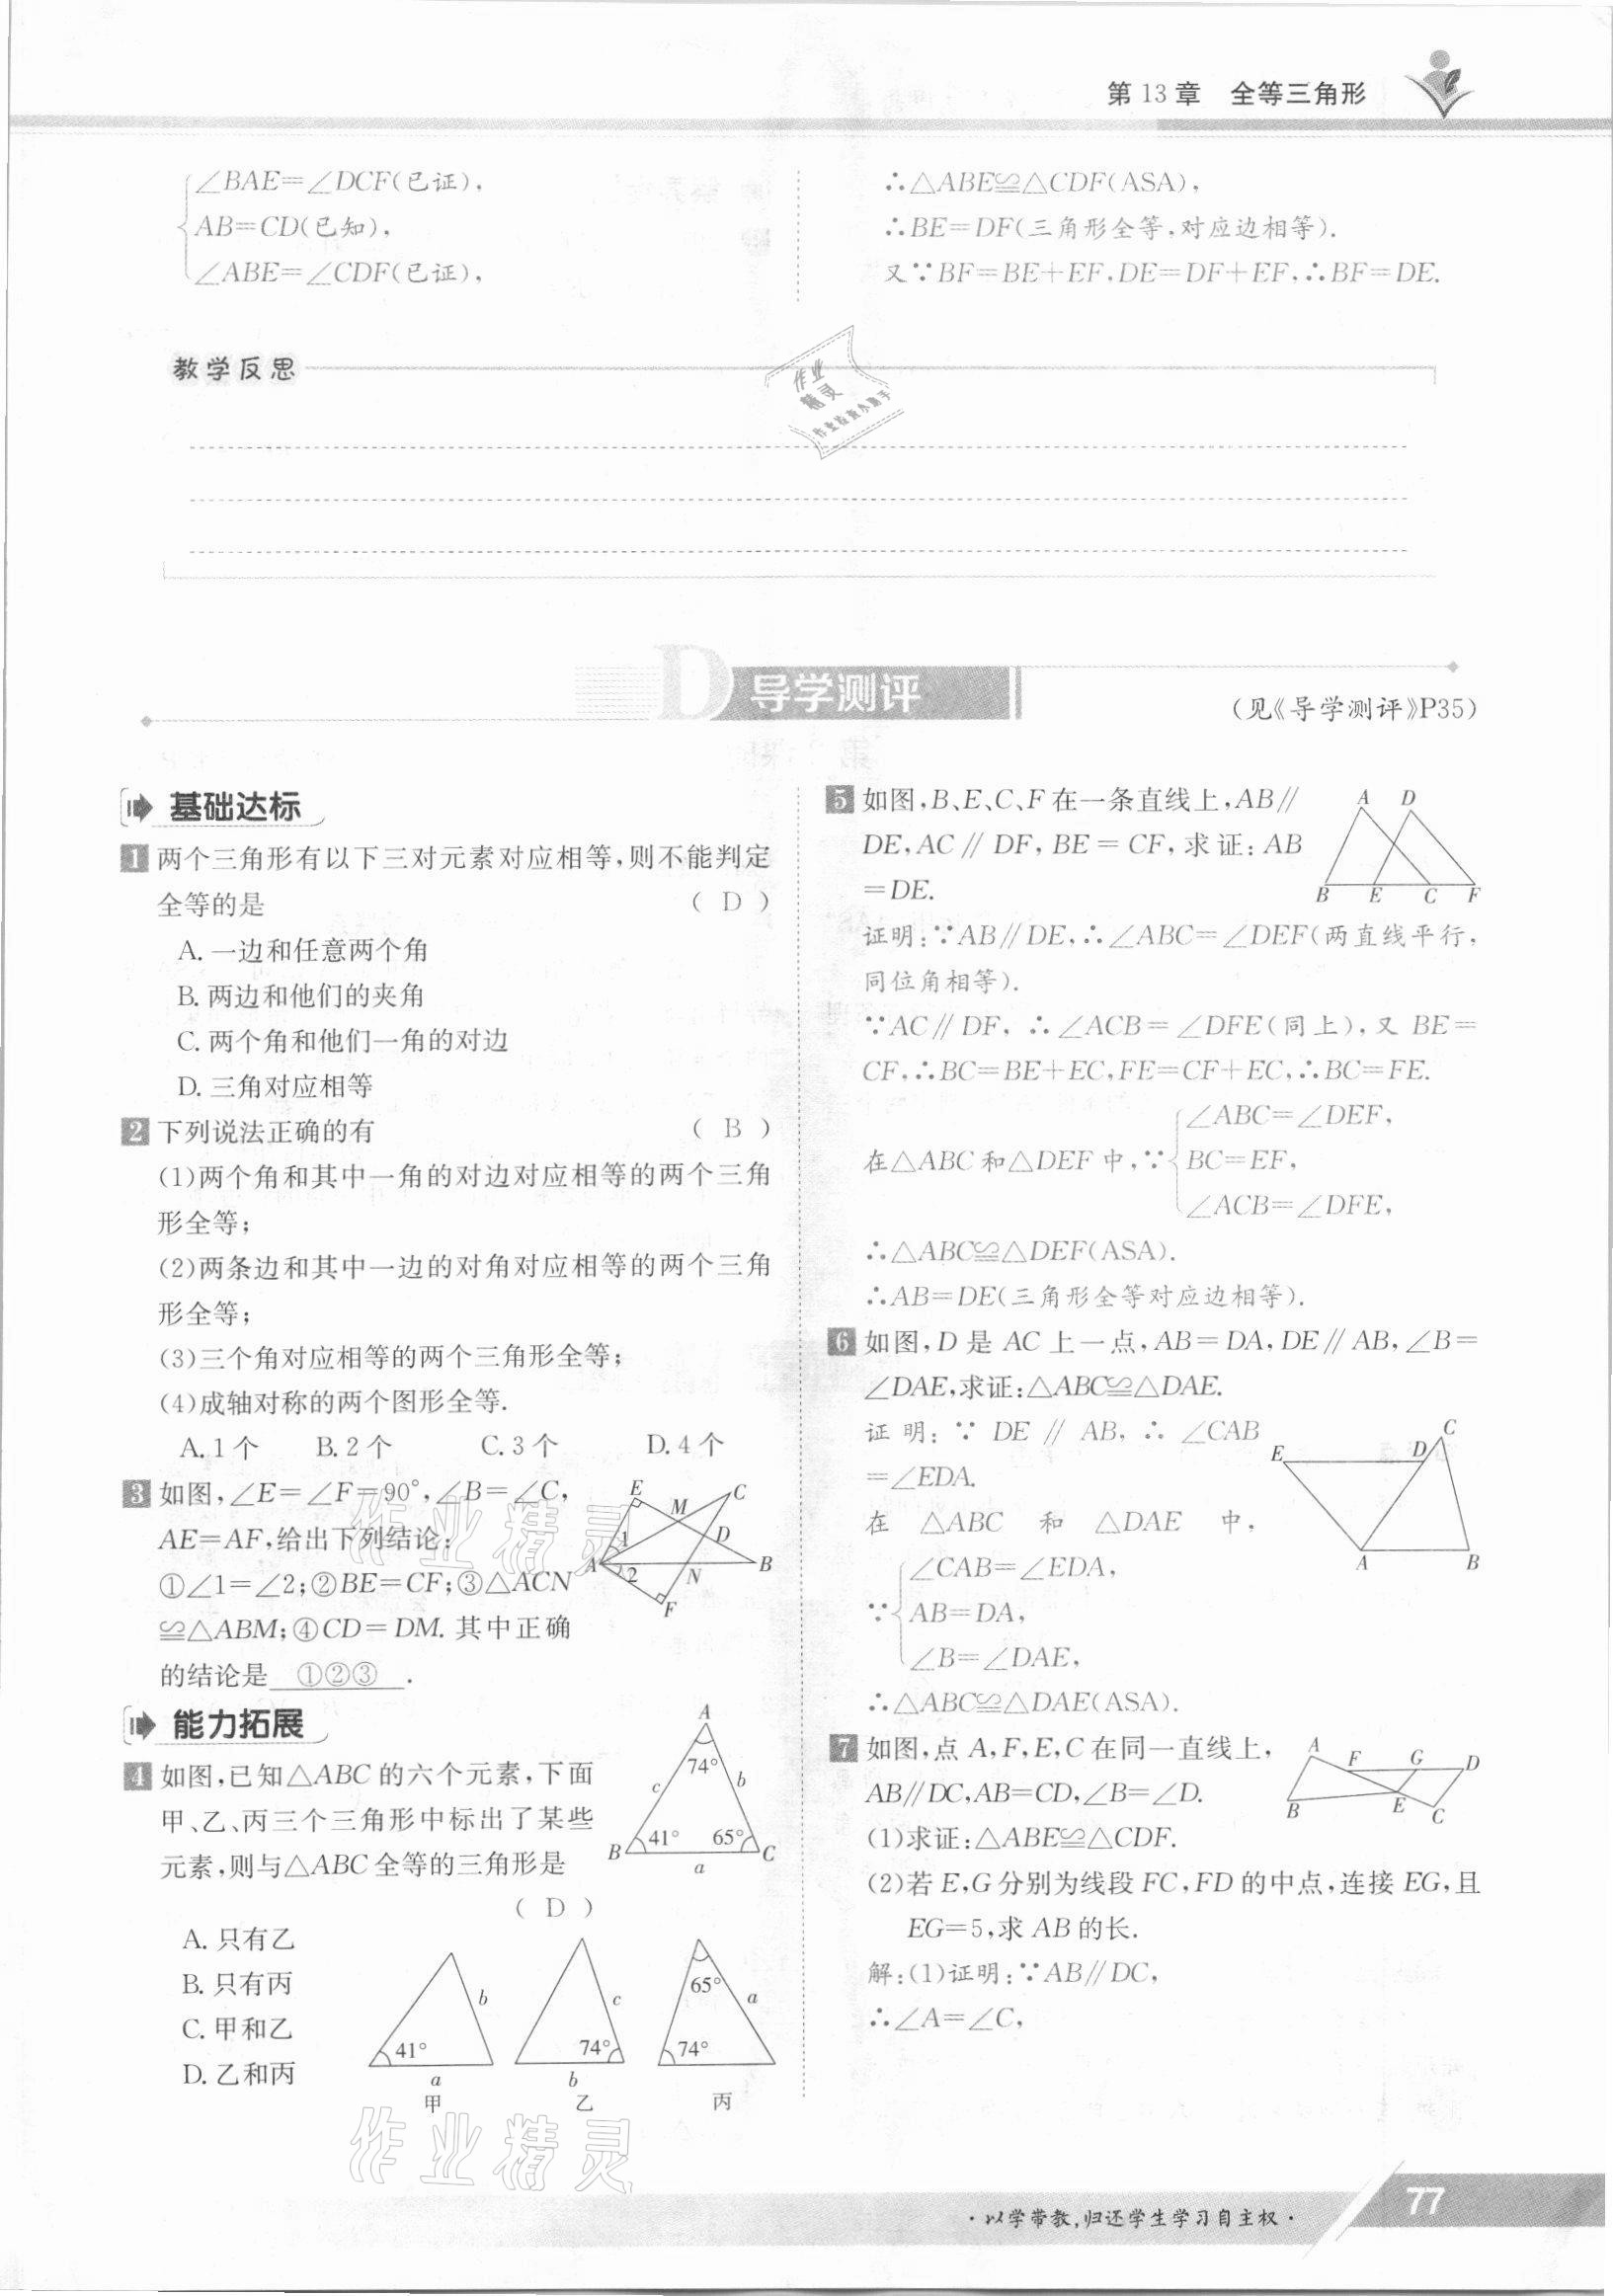 第13章 全等三角形
∠BAE=∠DCF(已证),
AB=CD(已知),
∠ABE=∠CDF(已证),
∴△ABE≌△CDF(ASA),
∴BE=DF(三角形全等,对应边相等).
又∵BF=BE+EF,DE=DF+EF,∴BF=DE.
教学反思
作业
精灵
作业检查小助手
D 导学测评
(见《导学测评》P35)
基础达标
1 两个三角形有以下三对元素对应相等,则不能判定
全等的是 ( D )
A. 一边和任意两个角
B. 两边和他们的夹角
C. 两个角和他们一角的对边
D. 三角对应相等
2 下列说法正确的有 ( B )
(1)两个角和其中一角的对边对应相等的两个三角
形全等;
(2)两条边和其中一边的对角对应相等的两个三角
形全等;
(3)三个角对应相等的两个三角形全等;
(4)成轴对称的两个图形全等.
A. 1个 B. 2个 C. 3个 D. 4个
3 如图,∠E=∠F=90°,∠B=∠C,
AE=AF,给出下列结论:
①∠1=∠2;②BE=CF;③△ACN
≌△ABM;④CD=DM. 其中正确
的结论是 ①②③ .
E M C D 1 A B 2 N F
能力拓展
4 如图,已知△ABC的六个元素,下面
甲、乙、丙三个三角形中标出了某些
元素,则与△ABC全等的三角形是
( D )
A 74° c b B 41° 65° C a
A. 只有乙
B. 只有丙
C. 甲和乙
D. 乙和丙
b 41° a 甲
c 74° b 乙
65° a 74° 丙
5 如图,B、E、C、F在一条直线上,AB∥
DE,AC∥DF,BE=CF,求证:AB
=DE.
A D B E C F
证明:∵AB∥DE,∴∠ABC=∠DEF(两直线平行,
同位角相等).
∵AC∥DF,∴∠ACB=∠DFE(同上),又BE=
CF,∴BC=BE+EC,FE=CF+EC,∴BC=FE.
∠ABC=∠DEF,
在△ABC和△DEF中,∵ BC=EF,
∠ACB=∠DFE,
∴△ABC≌△DEF(ASA).
∴AB=DE(三角形全等对应边相等).
6 如图,D是AC上一点,AB=DA,DE∥AB,∠B=
∠DAE,求证:△ABC≌△DAE.
证明:∵DE∥AB,∴∠CAB
=∠EDA.
在 △ABC 和 △DAE 中,
∠CAB=∠EDA,
∵ AB=DA,
∠B=∠DAE,
∴△ABC≌△DAE(ASA).
E D C A B
7 如图,点A,F,E,C在同一直线上,
AB∥DC,AB=CD,∠B=∠D.
(1)求证:△ABE≌△CDF.
(2)若E,G分别为线段FC,FD的中点,连接EG,且
EG=5,求AB的长.
A F G D B E C
解:(1)证明:∵AB∥DC,
∴∠A=∠C,
作业精灵
作业精灵
·以学带教,归还学生学习自主权·
77